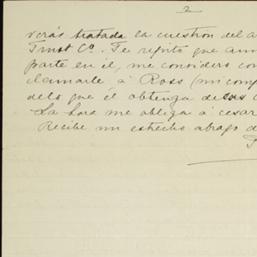 2
verás tratada la cuestion del a
Trust Co. Te repito que aun
parte en él, me considero con
clamarle á Ross (mi comp
delo que él obtenga de
La hora me obliga á cesar
Recibe un estrecho abrazo d